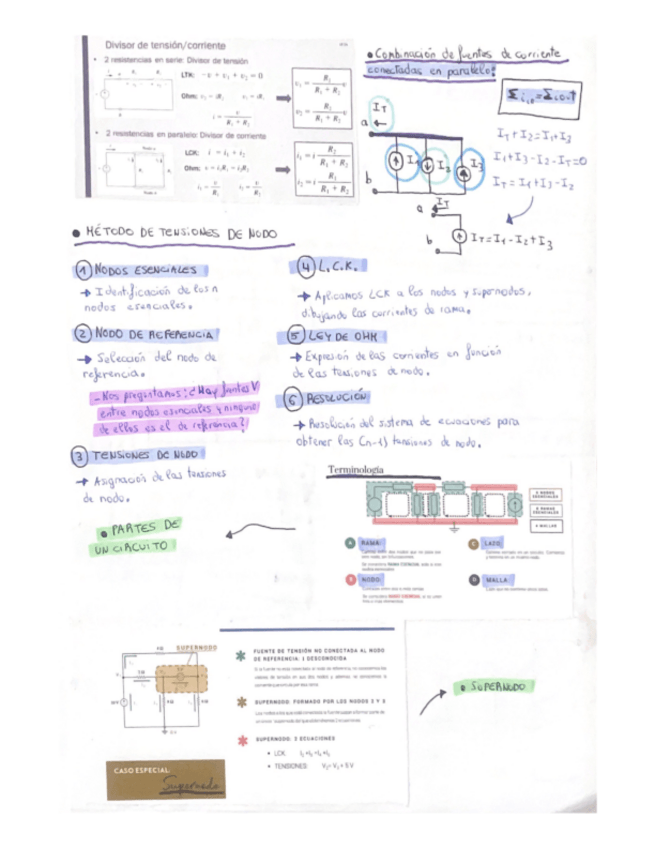 Divisor de tensión/corriente
• 2 resistencias en serie: Divisor de tensión
LTK: -v + v₁ + v₂ = 0
Ohm:
i = v / (R₁ + R₂)
v₁ = R₁ / (R₁ + R₂) v
v₂ = R₂ / (R₁ + R₂) v
• 2 resistencias en paralelo: Divisor de corriente
LCK: i = i₁ + i₂
Ohm: v = i₁R₁ = i₂R₂
i₁ = v / R₁ i₂ = v / R₂
i₁ = i R₂ / (R₁ + R₂)
i₂ = i R₁ / (R₁ + R₂)
• Combinación de fuentes de corriente
conectadas en paralelo:
I_T
a
I₁ I₂ I₃
b
I_T + I₂ = I₁ + I₃
I₁ + I₃ - I₂ - I_T = 0
I_T = I₁ + I₃ - I₂
I_T
a
b
I_T = I₁ - I₂ + I₃
• MÉTODO DE TENSIONES DE NODO
① NODOS ESENCIALES
→ Identificación de los n
nodos esenciales.
② NODO DE REFERENCIA
→ Selección del nodo de
referencia.
- Nos preguntamos: ¿Hay fuentes V
entre nodos esenciales y ninguno
de ellos es el de referencia?
③ TENSIONES DE NODO
→ Asignación de las tensiones
de nodo.
④ L.C.K.
→ Aplicamos LCK a los nodos y supernodos,
dibujando las corrientes de rama.
⑤ LEY DE OHM
→ Expresión de las corrientes en función
de las tensiones de nodo.
⑥ RESOLUCIÓN
→ Resolución del sistema de ecuaciones para
obtener las (n-1) tensiones de nodo.
• PARTES DE
UN CIRCUITO
Terminología
4 NODOS
ESENCIALES
6 RAMAS
ESENCIALES
4 MALLAS
A RAMA:
C LAZO:
B NODO:
D MALLA:
SUPERNODO
FUENTE DE TENSIÓN NO CONECTADA AL NODO
DE REFERENCIA: 1 DESCONOCIDA
SUPERNODO: FORMADO POR LOS NODOS 2 Y 3
SUPERNODO: 2 ECUACIONES
• LCK
• TENSIONES
CASO ESPECIAL:
Supernodo
• SUPERNODO